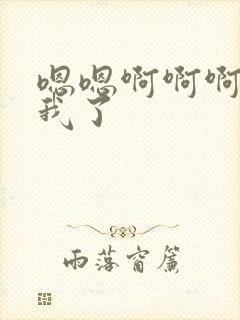 嗯嗯啊啊啊
我了
雨落窗簾